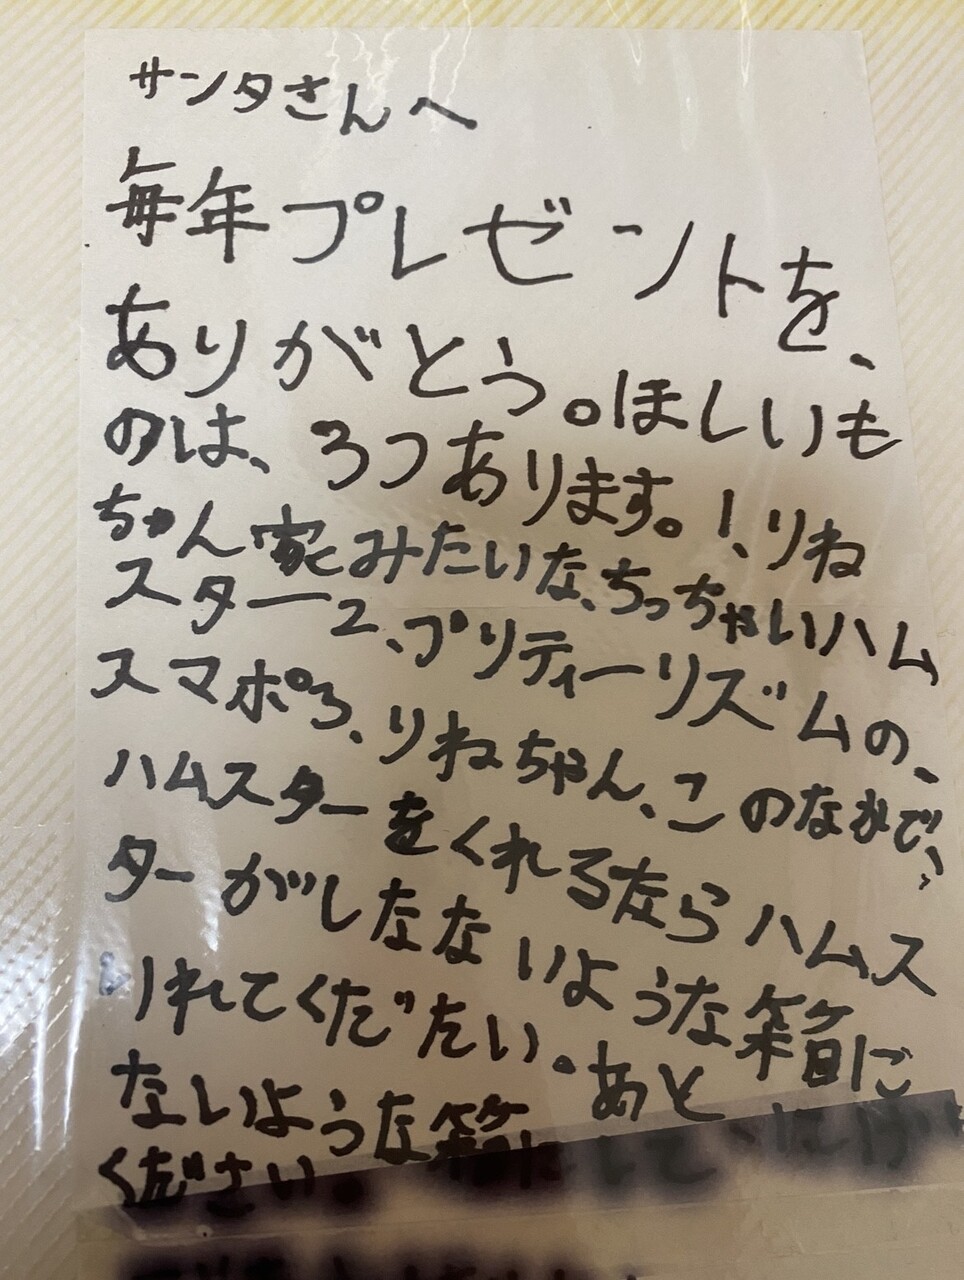 サンタさんへ
毎年プレゼントを、
ありがとう。ほしいも
のは、3つあります。1、りね
ちゃん家みたいな、ちっちゃいハム
スター2、プリティーリズムの、
スマポ3、りねちゃん、このなかで、
ハムスターをくれるなら ハムス
ターがしなないような箱に
いれてくだたい。あと
ないような箱にして、
ください。